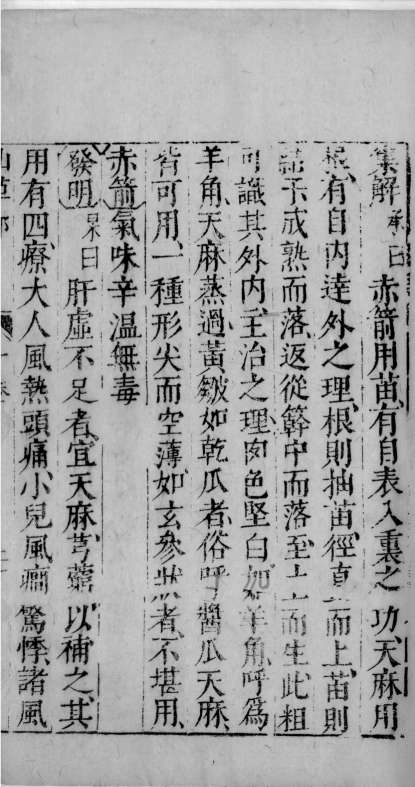 集解 承曰赤箭用苗有自表入裏之功天麻用
根有自內達外之理根則抽苗徑直而上苗則
結子成熟而落返從簳中而落至土而生此粗
可識其外內主治之理肉色堅白如羊角呼爲
羊角天麻蒸過黃皺如乾瓜者俗呼醬瓜天麻
皆可用一種形尖而空薄如玄參狀者不堪用
赤箭氣味辛溫無毒
發明 杲曰肝虛不足者宜天麻芎藭以補之其
用有四療大人風熱頭痛小兒風癇驚悸諸風